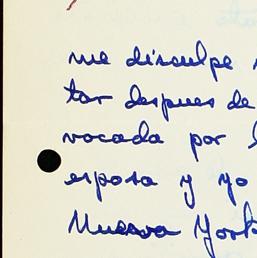 me disculpe
tar despues de
vocada por
esposa y yo
Nueva York